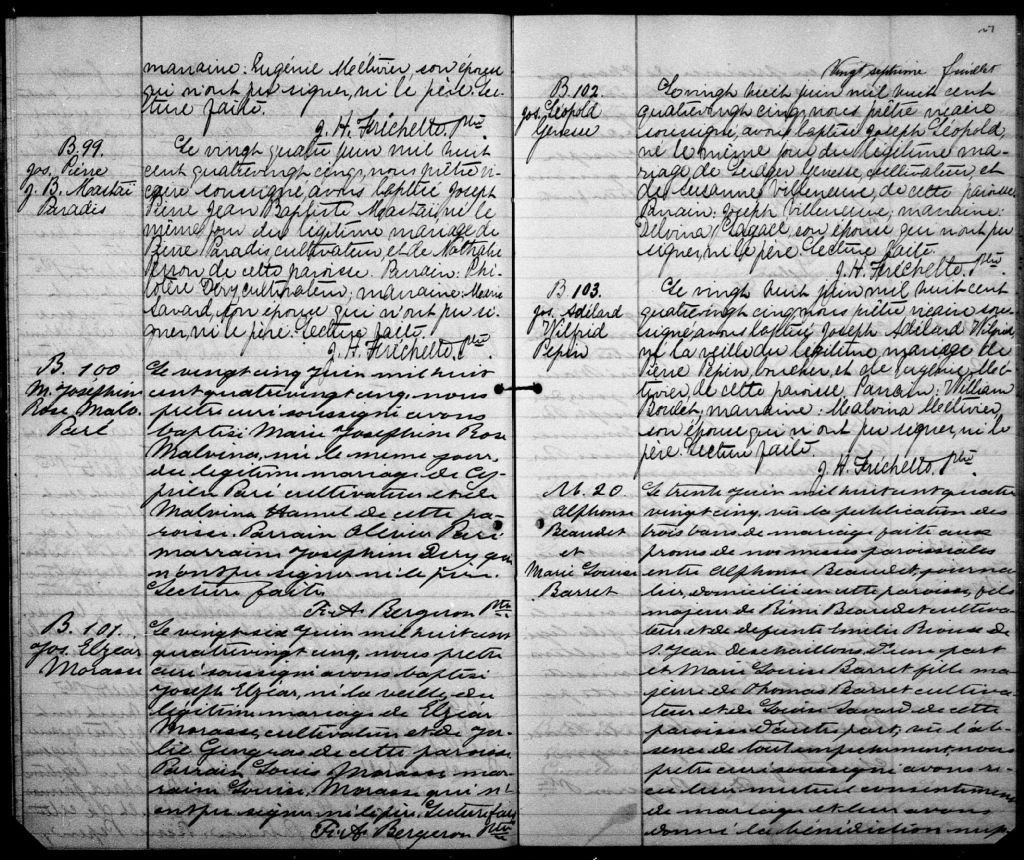 marraine: Eugénie Méthivier, son épouse
qui n'ont pu signer, ni le père. Lec-
ture faite.
J. H. Fréchette, Ptre
B. 99.
Jos. Pierre
J. B. Mastaï
Paradis
Le vingt quatre juin mil huit
cent quatrevingt cinq, nous prêtre vi-
caire soussigné, avons baptisé Joseph
Pierre Jean Baptiste Mastaï, né le
même jour du légitime mariage de
Pierre Paradis, cultivateur, et de Nathalie
de cette paroisse. Parrain: Phi-
Déry, cultivateur; marraine:
Savard, son épouse qui n'ont pu si-
gner, ni le père. Lecture faite.
J. H. Fréchette, Ptre
B. 100
M. Joséphine
Rose Malv.
Paré
Le vingt cinq Juin mil huit
cent quatrevingt cinq, nous
prêtre curé soussigné avons
baptisé Marie Joséphine Rose
Malvina, née le même jour,
du légitime mariage de Cy-
prien Paré cultivateur et de
Malvina Hamel de cette pa-
roisse. Parrain Olivier Paré
marraine Joséphine Déry qui
n'ont pu signer ni le père.
Lecture faite
F. A. Bergeron Ptre
B. 101.
Jos. Elzéar
Morasse
Le vingt-six Juin mil huit cent
quatrevingt cinq, nous prêtre
curé soussigné avons baptisé
Joseph Elzéar, né la veille, du
légitime mariage de Elzéar
Morasse, cultivateur et de Ju-
lie Gingras de cette paroisse
Parrain Louis Morasse mar-
raine Louise Morasse qui n'
ont pu signer ni le père. Lecture faite
F. A. Bergeron Ptre
Vingt septième feuillet
B. 102.
Jos. Léopold
Genesse
Le vingt huit juin mil huit cent
quatrevingt cinq, nous prêtre vicaire
soussigné, avons baptisé Joseph Léopold,
né le même jour du légitime ma-
riage de Ludger Genesse, cultivateur, et
de Suzanne Villeneuve, de cette paroisse.
Parrain: Joseph Villeneuve; marraine:
Delvina Lagacé, son épouse qui n'ont pu
signer, ni le père. Lecture faite.
J. H. Fréchette, Ptre
B 103.
Jos. Adélard
Wilfrid
Pepin
Le vingt huit juin mil huit cent
quatrevingt cinq, nous prêtre vicaire sous-
signé, avons baptisé Joseph Adélard Wilfrid,
né la veille du légitime mariage de
Pierre Pepin, boucher, et de Eugénie Mét-
hivier, de cette paroisse. Parrain: William
Boulet; marraine: Malvina Méthivier,
son épouse qui n'ont pu signer, ni le
père. Lecture faite.
J. H. Fréchette, Ptre
M. 20.
Alphonse
Beaudet
et
Marie Louise
Barret
Le trente Juin mil huit cent quatre
vingt cinq, vû la publication des
trois bans de mariage faite aux
prones de nos messes paroissiales
entre Alphonse Beaudet, journa-
lier, domicilié en cette paroisse, fils
majeur de Rémi Beaudet cultiva-
teur et de défunte Emilie de
S. Jean Deschaillons d'une part
et Marie Louise Barret fille ma-
jeure de Thomas Barret cultiva-
teur et de Louise Savard de cette
paroisse d'autre part; vû l'ab-
sence de tout empêchement, nous
prêtre curé soussigné avons re-
çu leur mutuel consentement
de mariage et leur avons
donné la bénédiction nup-